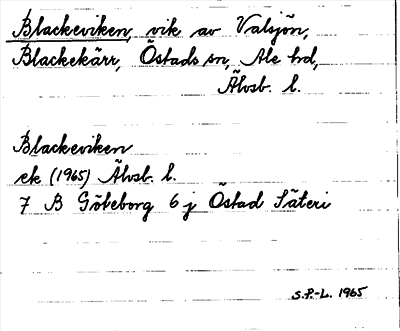 Blackeviken, vik av Valsjön,
Blackekärr, Östads sn, Ale hd,
Älvsb. l.
Blackeviken
ek (1965) Älvsb. l.
7 B Göteborg 6 j Östad Säteri
S.P.-L. 1965